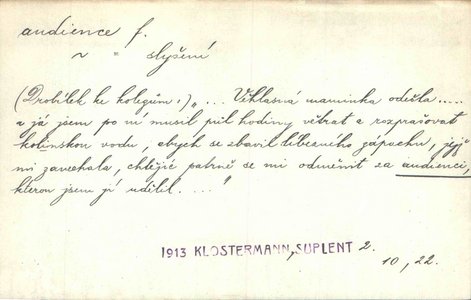 audience f.
~ = slyšení
(Drobílek ke kolegům:) „... Věhlasná maminka odešla .....
a já jsem po ní musil půl hodiny větrat a rozprašovat
kolínskou vodu, abych se zbavil líbezného zápachu, jejž
mi zanechala, chtějíc patrně se mi odměnit za audienci,
kterou jsem jí udělil. ...."
1913 KLOSTERMANN, SUPLENT 2.
10, 22.